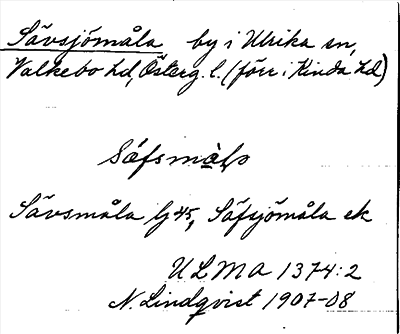 Sävsjömåla by i Ulrika sn,
Valkebo hd, Österg. l. (förr i Kinda hd)
Säfsmåḷa
Sävsmåla lj 45, Säfsjömåla ek
ULMA 1374:2
N. Lindqvist 1907-08